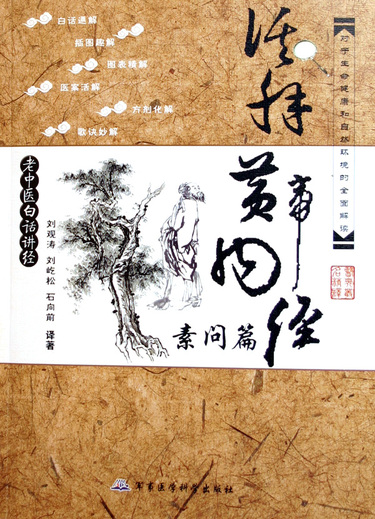 白话通解
插图趣解
图表精解
医案活解
方剂化解
歌诀妙解
对于生命健康和自然环境的全面解读
黄帝内经
素问篇
老中医白话讲经
刘观涛 刘屹松 石向前 译著
军事医学科学出版社